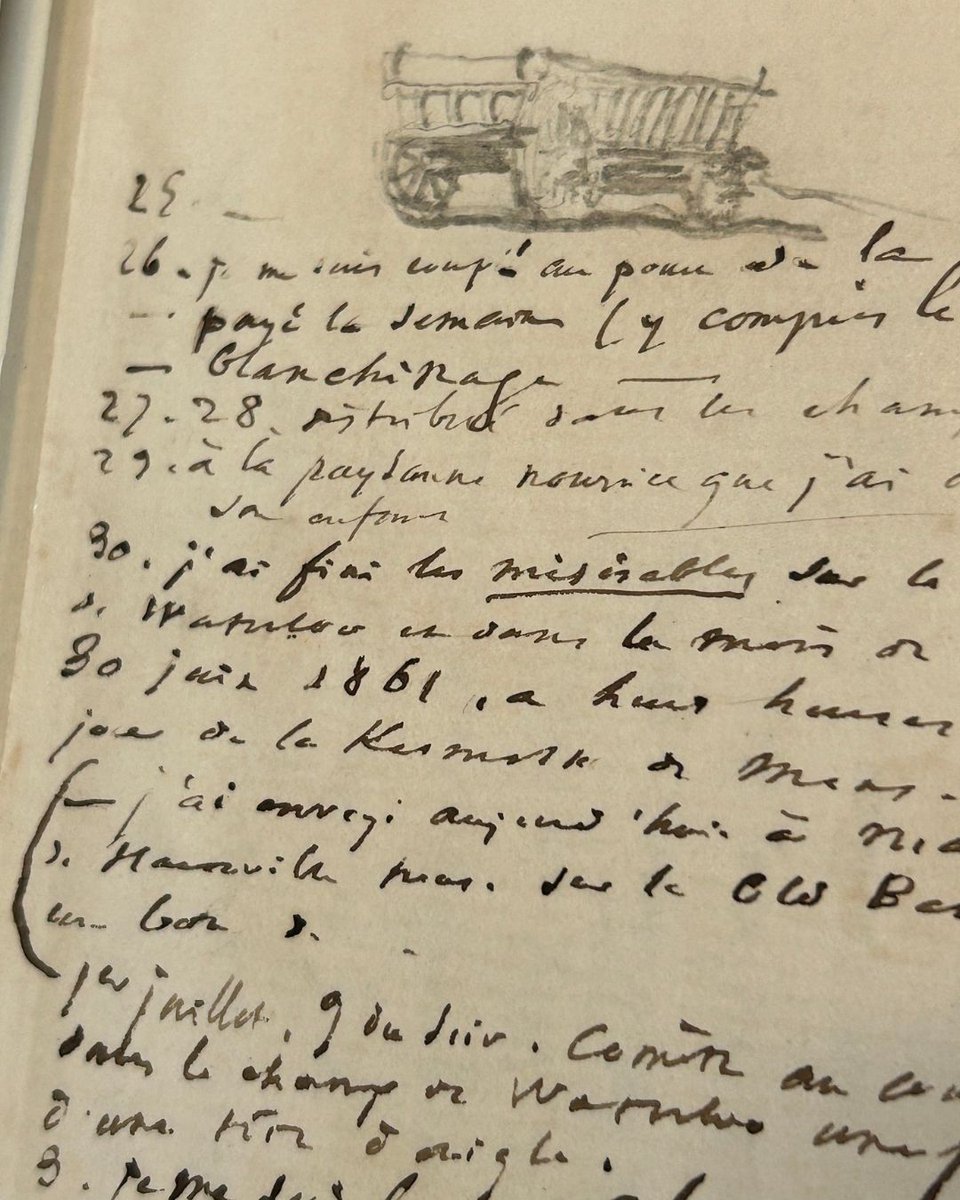 25. —
26. je me suis coupé au pouce de la
— payé la semaine (y compris le
— blanchissage —
27. 28. distribué dans les
29. à la paysanne nourrice que j'ai
son enfant
30. j'ai fini les misérables sur le
de Waterloo et dans le mois de
30 juin 1861, à huit heures
jour de la Kermesse de Mons.
(— j'ai envoyé aujourd'hui à
de sur le Old
un bon de
1er juillet, 9 du soir. Comète au
dans le champ de Waterloo une
d'une tête d'aigle.
3. je me suis